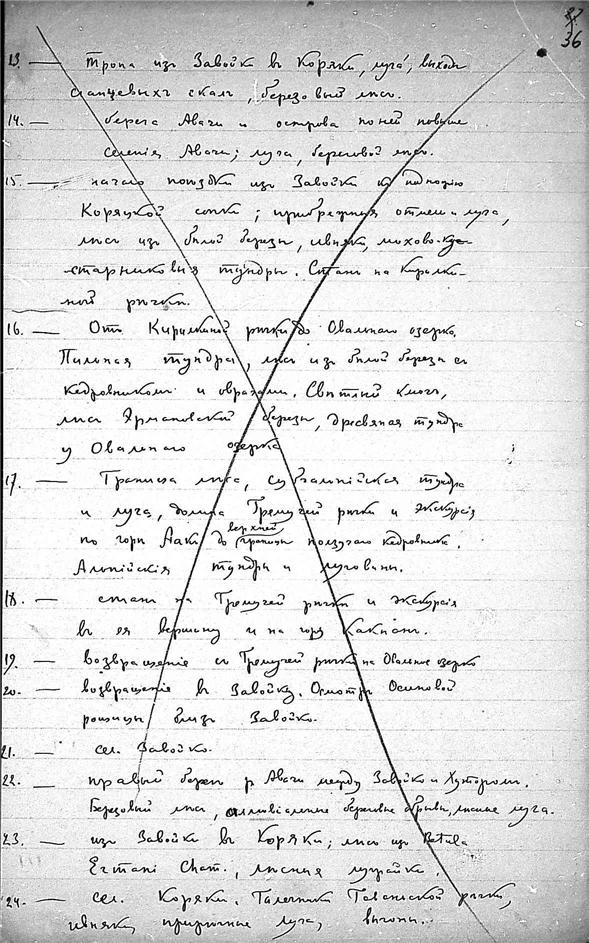 36
13. — тропа изъ Завойко въ Коряки, луга, выходы
сланцевыхъ скалъ, березовый лѣсъ.
14. — берега Авачи и острова по ней повыше
селенія Авачи; луга, береговой лѣсъ.
15. — начало поѣздки изъ Завойко къ подножію
Коряцкой сопки; прибрежныя отмели и луга,
лѣсъ изъ бѣлой березы, ивняк, мохово-ку-
старниковыя тундры. Станъ на Кирилки-
ной рѣчкѣ.
16. — Отъ Кирилкиной рѣчки до Овальнаго озерка.
тундра, лѣсъ изъ бѣлой березы съ
кедровникомъ и оврагами. Свѣтлый ключъ,
лѣсъ Эрмановской березы, дресвяная тундра
у Овальнаго озерка
17. — Граница лѣса, субальпійская тундра
и луга, долина Гремучей рѣчки и экскурсія
по горѣ Аакъ до верхней границы ползучаго кедровника.
Альпійскія тундры и луговины.
18. — станъ на Гремучей рѣчкѣ и экскурсія
въ ея вершину и на гору
19. — возвращеніе съ Гремучей рѣчки на Овальное озерко
20. — возвращеніе въ Завойко. Осмотръ Осиновой
рощицы близъ Завойко.
21. — сел. Завойко.
22. — правый берегъ р. Авачи между Завойко и Хуторомъ.
Березовый лѣсъ, аллювіальные береговые обрывы, лѣсные луга.
23. — изъ Завойко въ Коряки; лѣсъ изъ Betula
Ermani Cham., лѣсныя лужайки.
24. — сел. Коряки. Галечники рѣчки,
ивняки, прирѣчные луга, выгоны.